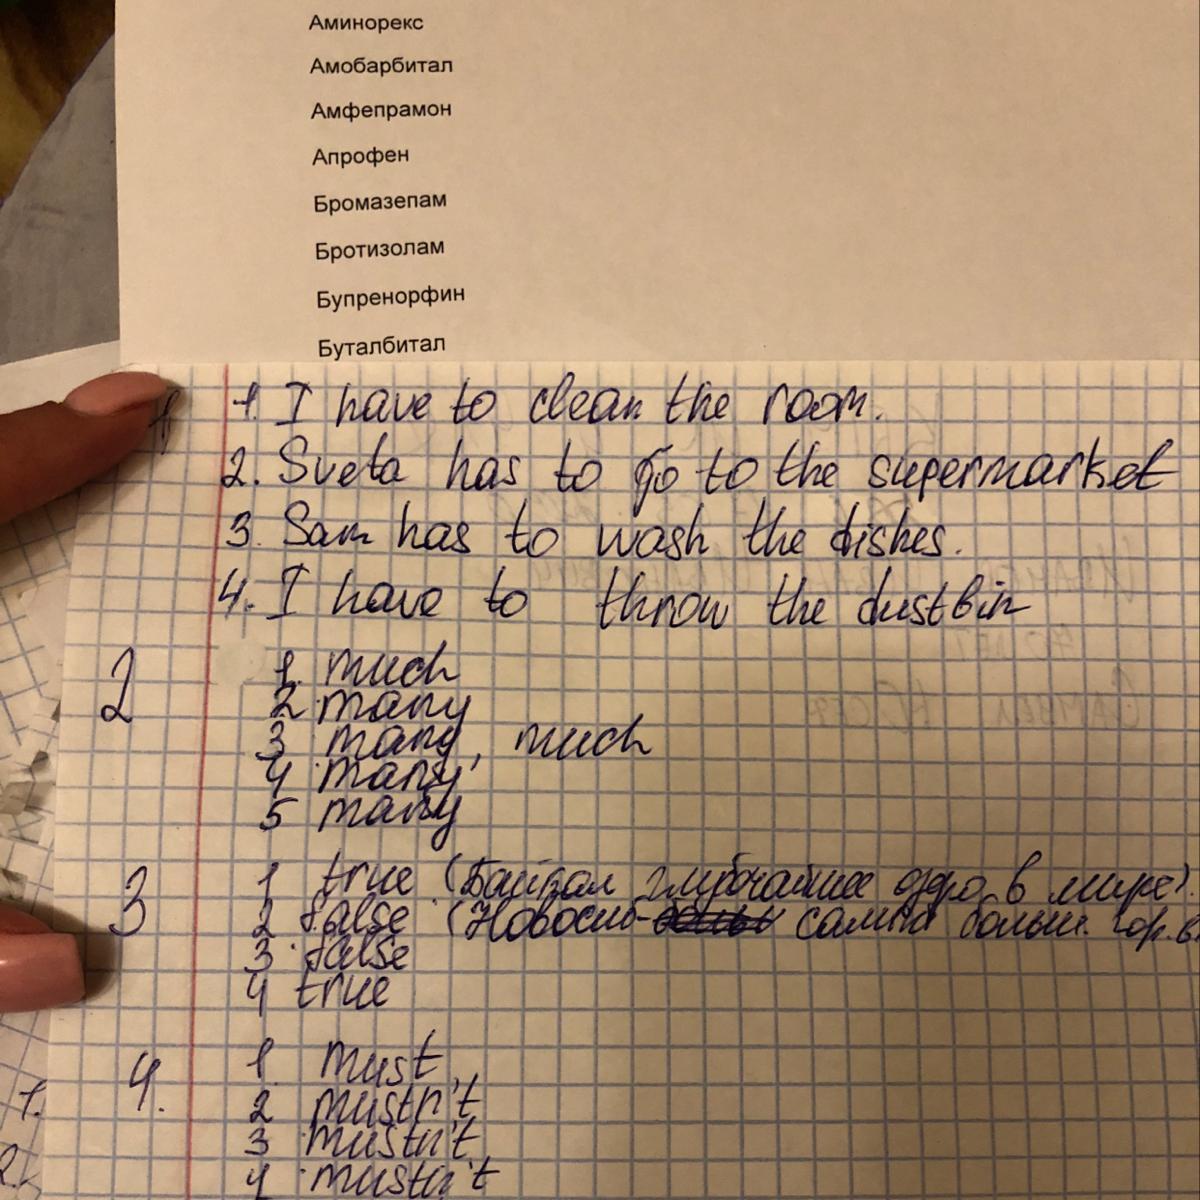 Аминорекс
Амобарбитал
Амфепрамон
Апрофен
Бромазепам
Бротизолам
Бупренорфин
Буталбитал
1. I have to clean the room.
2. Sveta has to go to the supermarket
3. Sam has to wash the dishes.
4. I have to throw the dustbin
2 1. much
2 many
3 many, much
4 many
5 many
3 1 true (Байкал глубочайшее озеро в мире).
2 false (Новосиб- самый больш. гор. в.
3 false
4 true
4. 1. must
2 mustn't
3 mustn't
4 mustn't
1.
2.